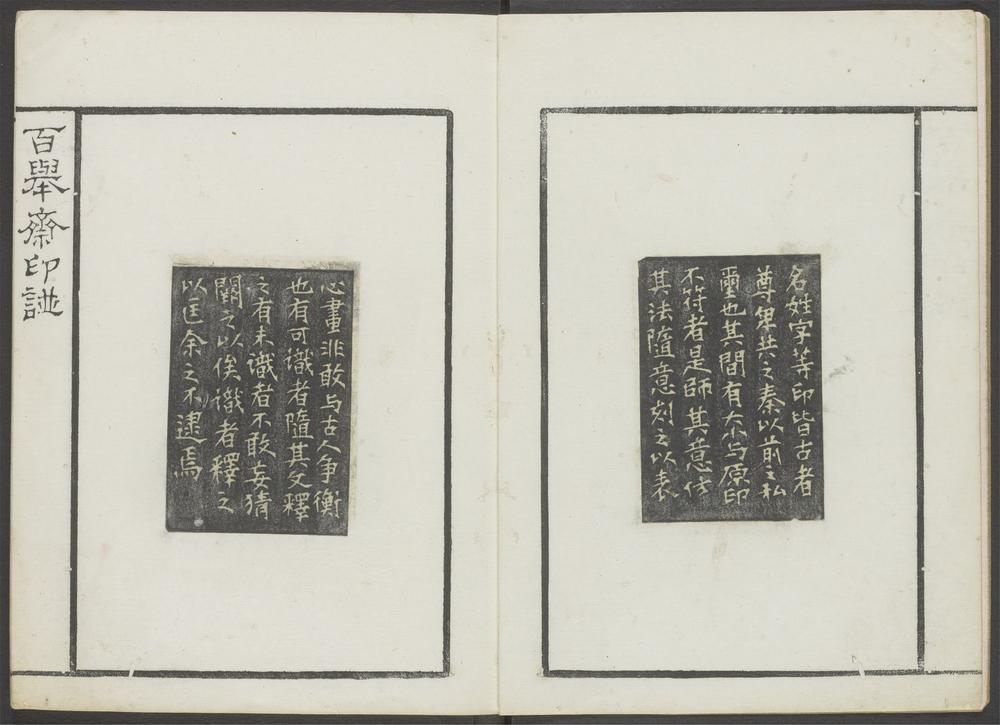 名姓字等印皆古者
尊卑共之秦以前之私
璽也其間有大小与原印
不符者是師其意仿
其法隨意刻之以表
心畫非敢与古人争衡
也有可識者隨其文釋
之有未識者不敢妄猜
闕之以俟識者釋之
以匡余之不逮焉
百舉齋印譜